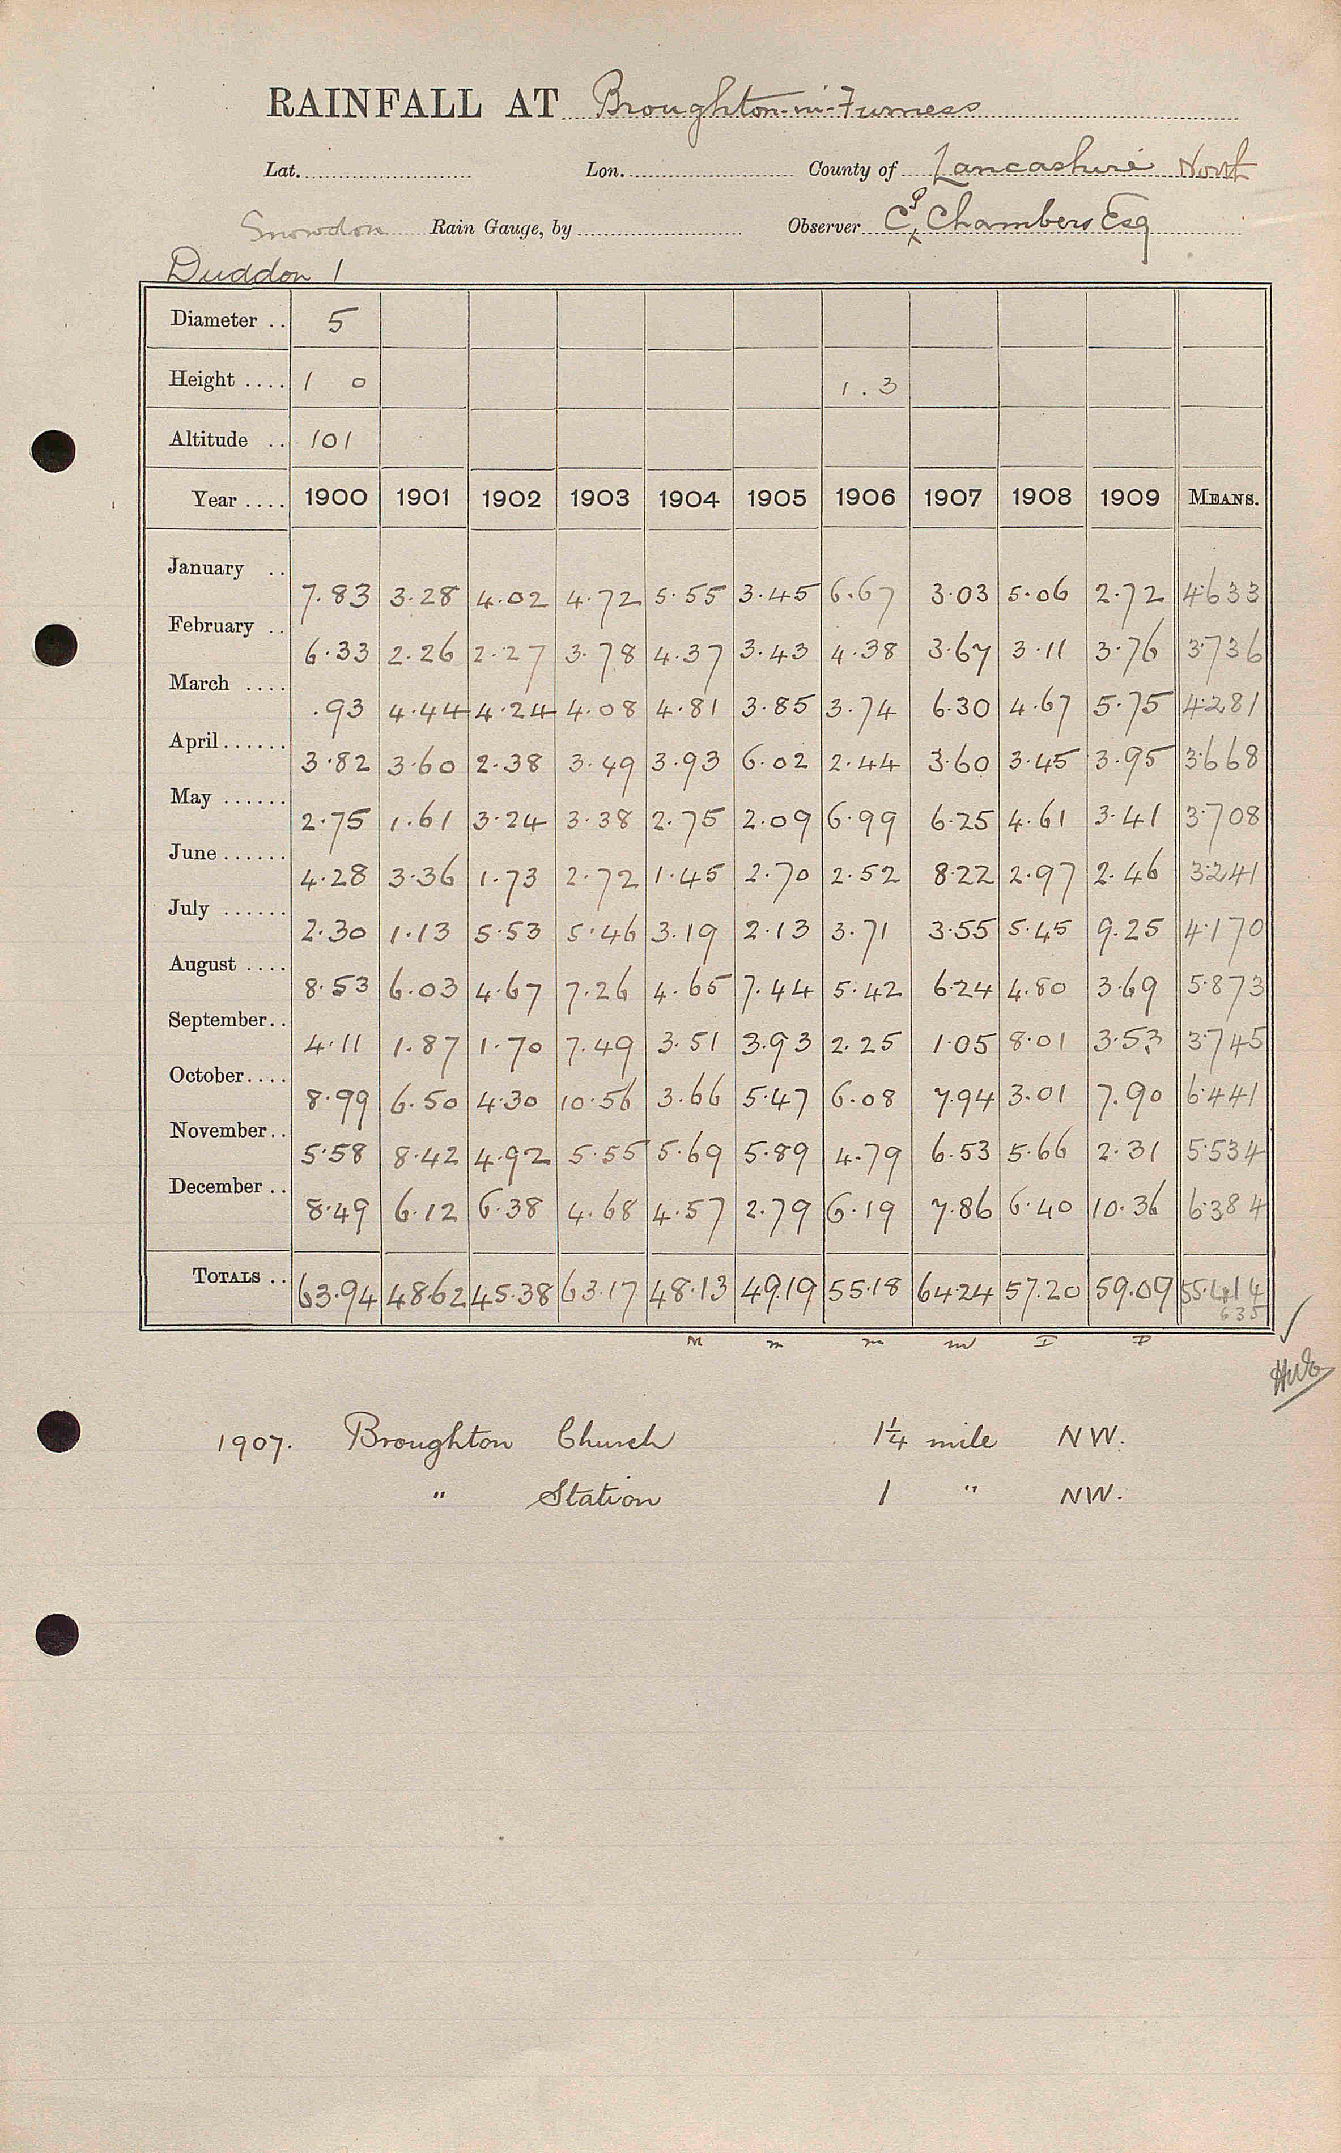 RAINFALL AT Broughton-in-Furness
Lat. Lon. County of Lancashire North
Snowdon Rain Gauge, by Observer C P Chambers Esq
Duddon 1
Diameter .. 5
Height .... 1 0 1.3
Altitude .. 101
Year .... 1900 1901 1902 1903 1904 1905 1906 1907 1908 1909 MEANS.
January .. 7.83 3.28 4.02 4.72 5.55 3.45 6.67 3.03 5.06 2.72 4.633
February .. 6.33 2.26 2.27 3.78 4.37 3.43 4.38 3.67 3.11 3.76 3.736
March .... .93 4.44 4.24 4.08 4.81 3.85 3.74 6.30 4.67 5.75 4.281
April ...... 3.82 3.60 2.38 3.49 3.93 6.02 2.44 3.60 3.45 3.95 3.668
May ...... 2.75 1.61 3.24 3.38 2.75 2.09 6.99 6.25 4.61 3.41 3.708
June ...... 4.28 3.36 1.73 2.72 1.45 2.70 2.52 8.22 2.97 2.46 3.241
July ...... 2.30 1.13 5.53 5.46 3.19 2.13 3.71 3.55 5.45 9.25 4.170
August .... 8.53 6.03 4.67 7.26 4.65 7.44 5.42 6.24 4.80 3.69 5.873
September.. 4.11 1.87 1.70 7.49 3.51 3.93 2.25 1.05 8.01 3.53 3.745
October.... 8.99 6.50 4.30 10.56 3.66 5.47 6.08 7.94 3.01 7.90 6.441
November.. 5.58 8.42 4.92 5.55 5.69 5.89 4.79 6.53 5.66 2.31 5.534
December .. 8.49 6.12 6.38 4.68 4.57 2.79 6.19 7.86 6.40 10.36 6.384
TOTALS .. 63.94 48.62 45.38 63.17 48.13 49.19 55.18 64.24 57.20 59.09 55.414
635
M m m m D D
1907. Broughton Church 1¼ mile NW.
" Station 1 " NW.